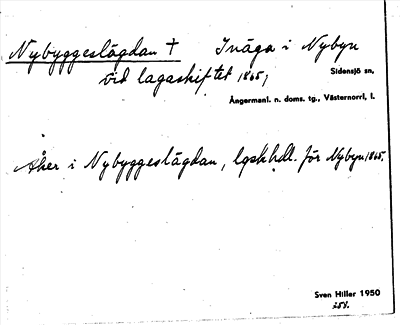 Nybyggeslägdan † Inäga i Nybyn
vid lagaskiftet 1865,
Sidensjö sn,
Ångermanl. n. doms. tg., Västernorrl. l.
Åker i Nybyggeslägdan, lgskhdl. för Nybyn 1865.
Sven Hiller 1950